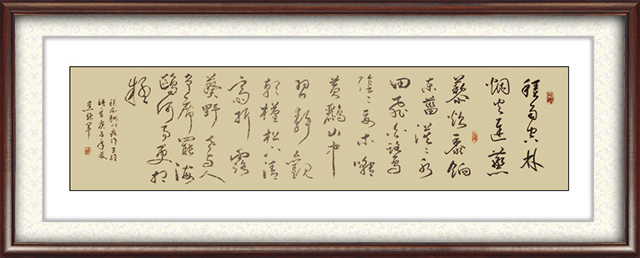 積雨空林
烟火遲蒸
藜炊黍餉
東菑漠々水
田飛白鷺
陰々夏木囀
黃鸝山中
習靜觀
朝槿松下清
齋折露
葵野老與人
爭席罷海
鷗何事更相
疑